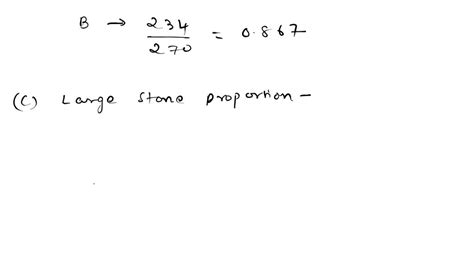 B → 234/270 = 0.867
(C) Large stone proportion –